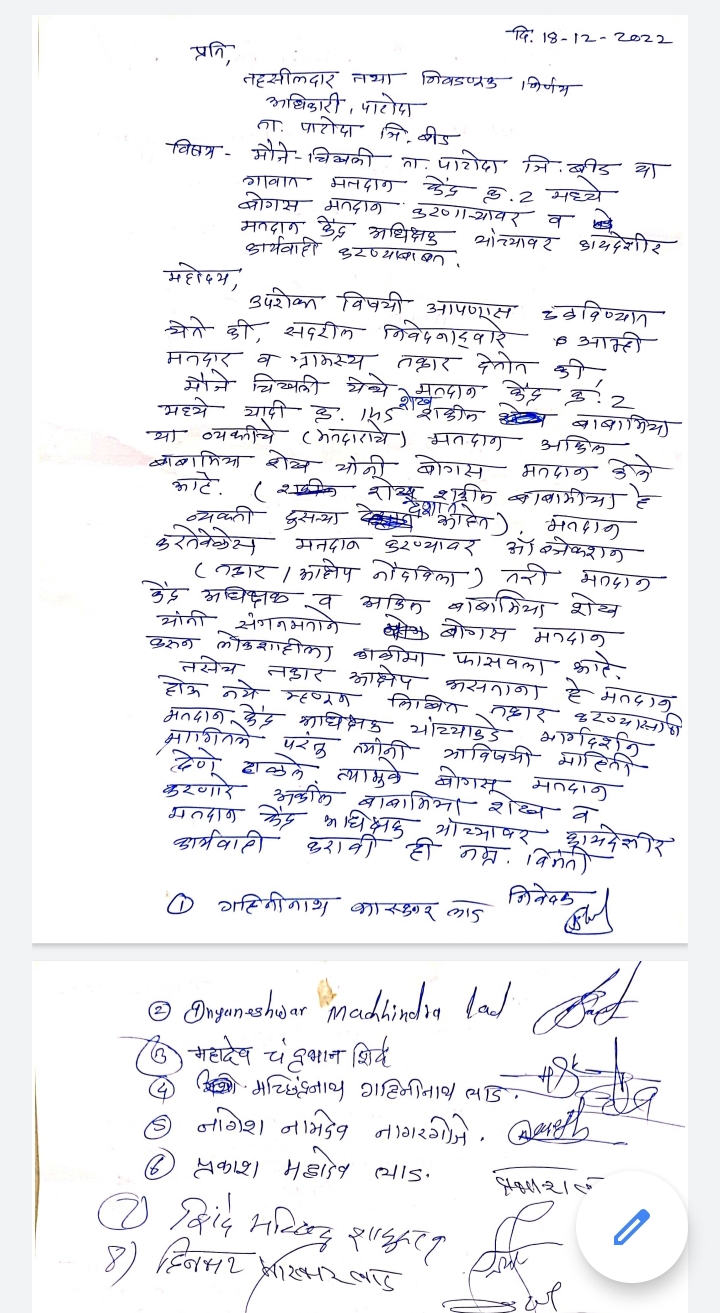 दि. 18-12-2022
प्रति,
तहसीलदार तथा निवडणूक निर्णय
अधिकारी, पाटोदा
ता. पाटोदा जि. बीड
विषय - मौजे-चिखली ता. पाटोदा जि. बीड या
गावात मतदान केंद्र क्र. 2 मध्ये
बोगस मतदान करणाऱ्यावर व
मतदान केंद्र अधिक्षक यांच्यावर कायदेशीर
कार्यवाही करण्याबाबत.
महोदय,
उपरोक्त विषयी आपणास कळविण्यात
येते की, सदरील निवेदनाद्वारे आम्ही
मतदार व ग्रामस्थ तक्रार देतोत की
मौजे चिखली येथे मतदान केंद्र क्र. 2
मध्ये यादी क्र. 145 शेख शकील बाबामिया
या व्यक्तीचे (मतदाराचे) मतदान अकिल
बाबामिया शेख यांनी बोगस मतदान केले
आहे. ( शेख शकील बाबामीया हे
व्यक्ती दुसऱ्या देशात आहेत). मतदान
करतेवेळेस मतदान करण्यावर ऑब्जेकशन
(तक्रार / आक्षेप नोंदविला) तरी मतदान
केंद्र अधिक्षक व अकिल बाबामिया शेख
यांनी संगनमताने बोगस मतदान
करुन लोकशाहीला काळीमा फासवला आहे.
तसेच तक्रार आक्षेप असताना हे मतदान
होऊ नये म्हणून लिखित तक्रार करण्यासाठी
मतदान केंद्र अधिक्षक यांच्याकडे मार्गदर्शन
मागितले परंतु त्यांनी याविषयी माहिती
देणे टाळले. त्यामुळे बोगस मतदान
करणारे अकील बाबामिया शेख व
मतदान केंद्र अधिक्षक यांच्यावर कायदेशीर
कार्यवाही करावी ही नम्र. विनंती
निवेदक
① गहिनीनाथ भास्कर लाड
② Dnyaneshwar Machhindra lad
③ महादेव चंद्रभान शिंदे
④ मच्छिंद्रनाथ गहिनीनाथ लाड.
⑤ नागेश नामदेव नागरगोजे.
⑥ प्रकाश महादेव लाड.
⑦ शिंदे मच्छिंद्र
8) दिनकर भास्कर लाड